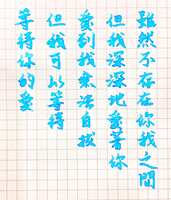 雖然不存在你我之間
但我深深地愛著你
愛到我無法自拔
但我可以等待
等待你的愛